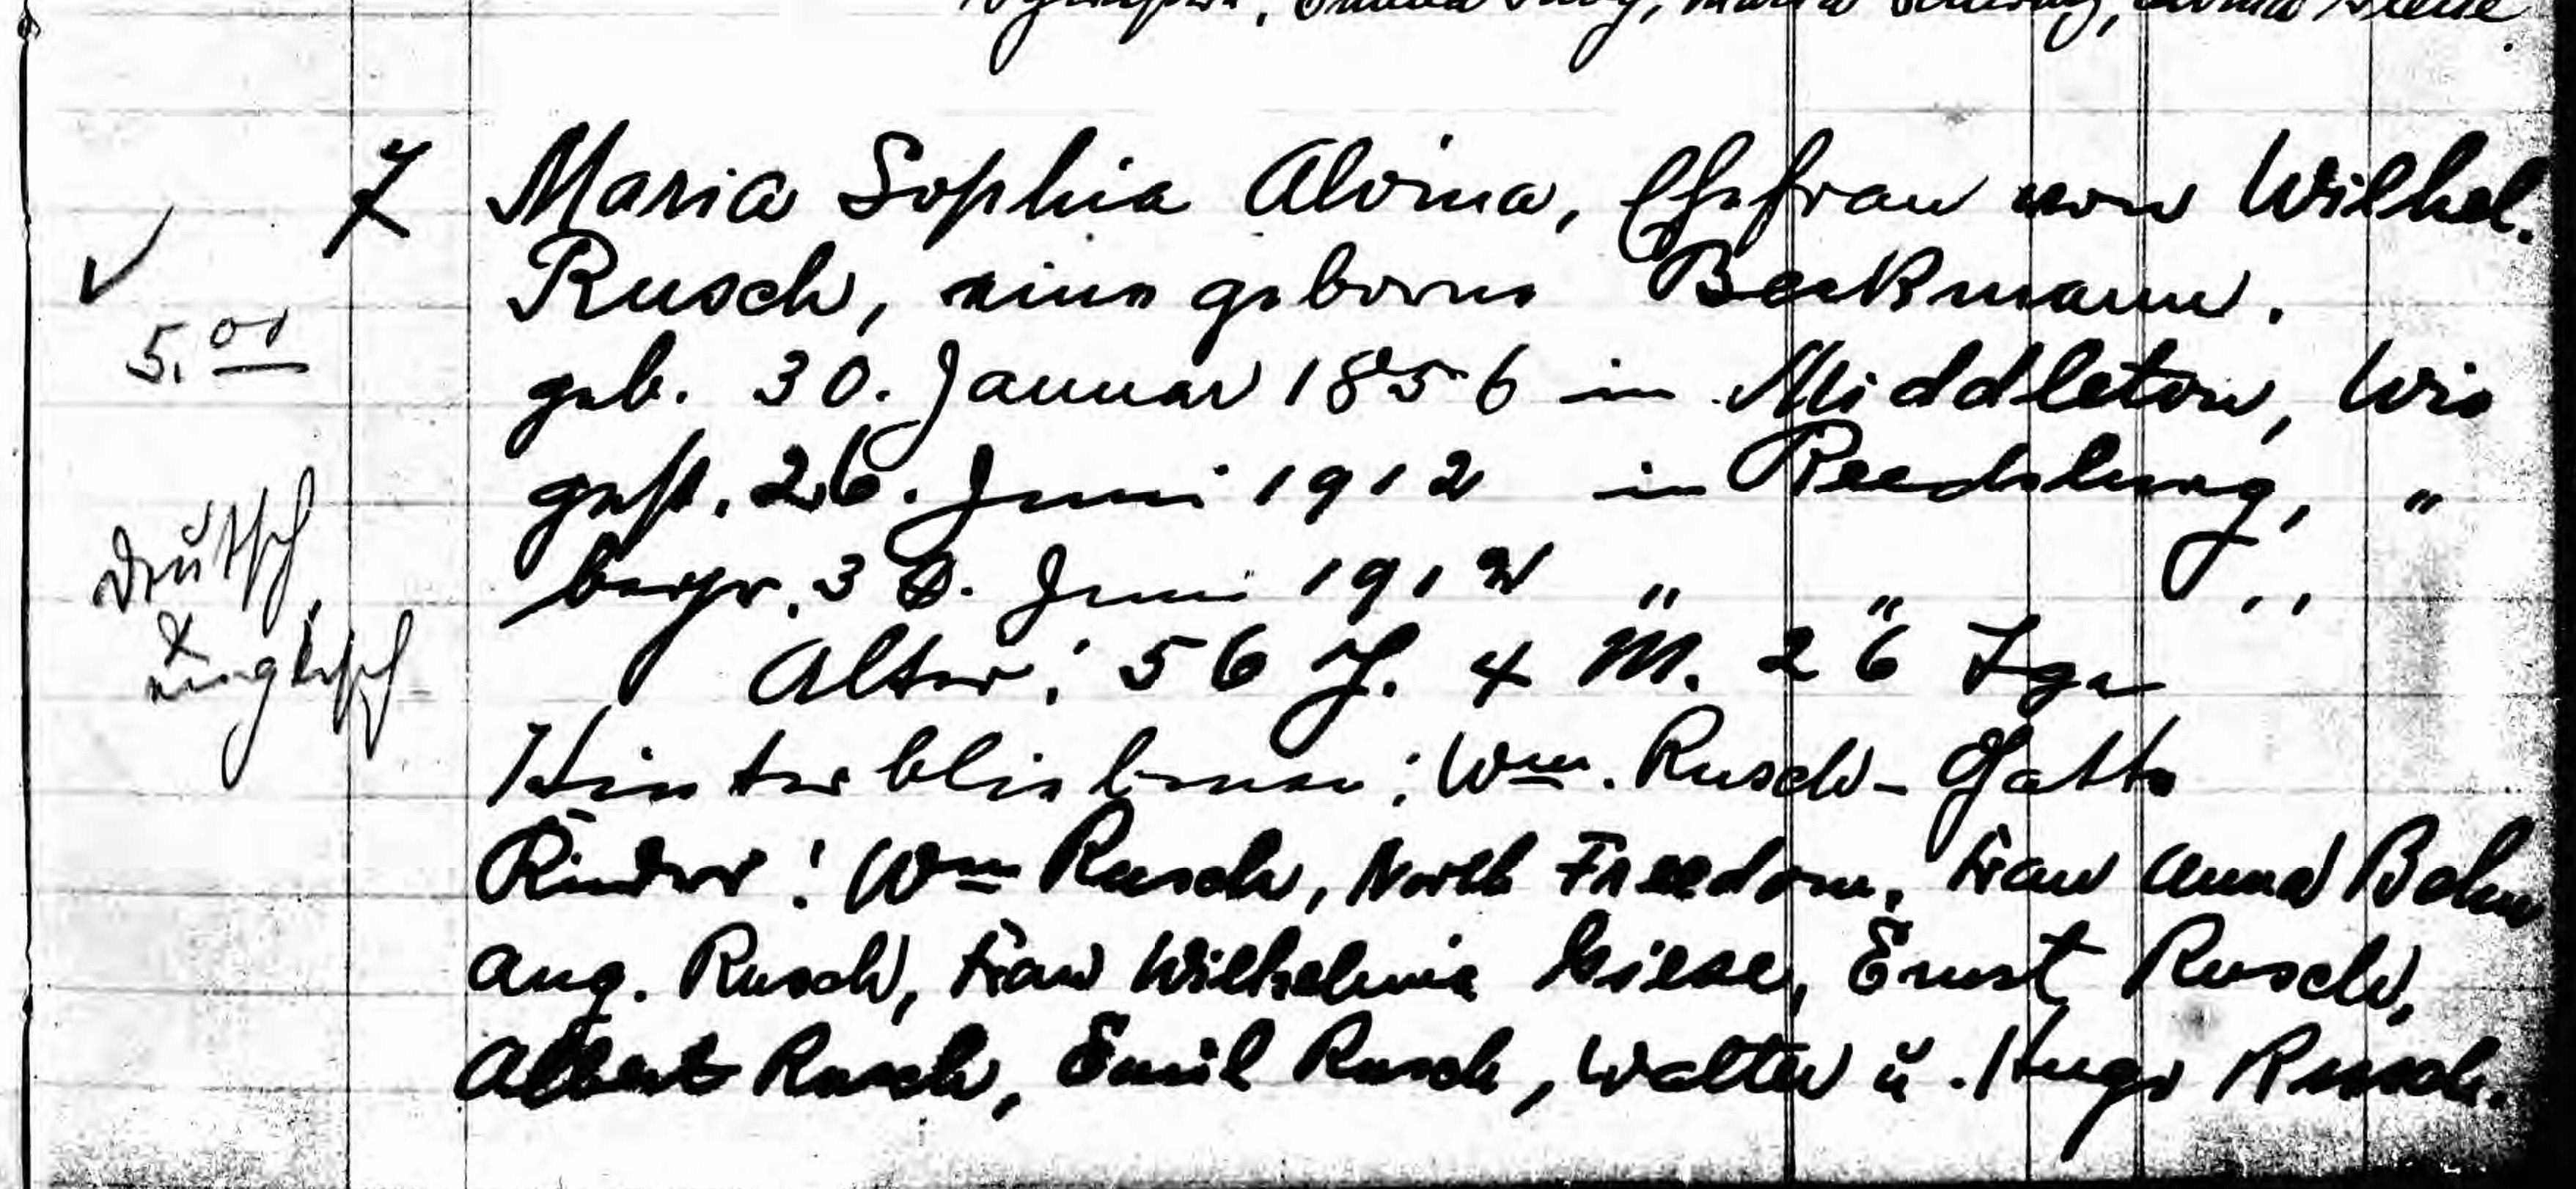 7 Maria Sophia Alvina, Ehefrau von Wilhel.
Rusch, eine geborne Beckmann.
5.00
geb. 30. Januar 1856 in Middleton, Wis
gest. 26. Juni 1912 in Reedsburg, "
beegr. 30. Juni 1912 " " "
Deutsch
&
englisch
Alter: 56 J. 4 M. 26 Tge
Hinterbliebenen: Wm. Rusch - Gatte
Kinder: Wm Rusch, North Freedom, Frau Anna Bohn
Aug. Rusch, Frau Wilhelmia Giese, Ernst Rusch,
Albert Rusch, Emil Rusch, Walter u. Hugo Rusch.